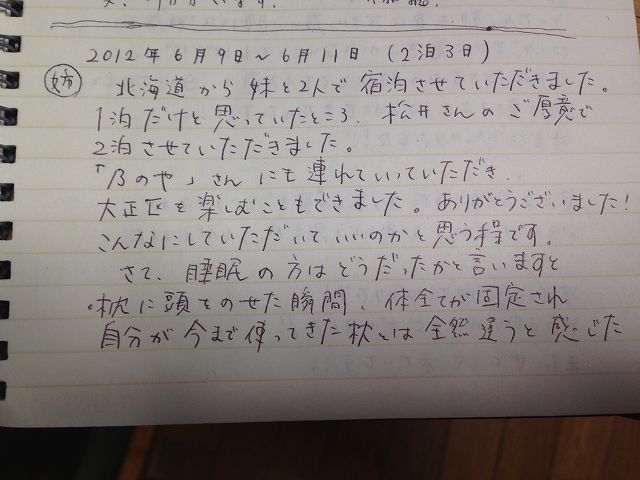 2012年6月9日～6月11日（2泊3日）
姉 北海道から妹と2人で宿泊させていただきました。
1泊だけと思っていたところ、松井さんのご厚意で
2泊させていただきました。
「乃のや」さんにも連れていっていただき、
大正区を楽しむこともできました。ありがとうございました!
こんなにしていただいていいのかと思う程です。
さて、睡眠の方はどうだったかと言いますと
・枕に頭をのせた瞬間、体全てが固定され
自分が今まで使ってきた枕とは全然違うと感じた